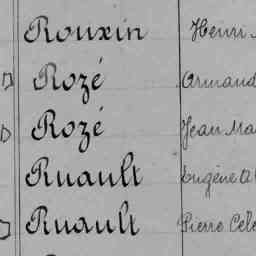 Rouxin Henri
Rozé Armand
Rozé Jean Ma
Ruault Eugène Al
Ruault Pierre Cele